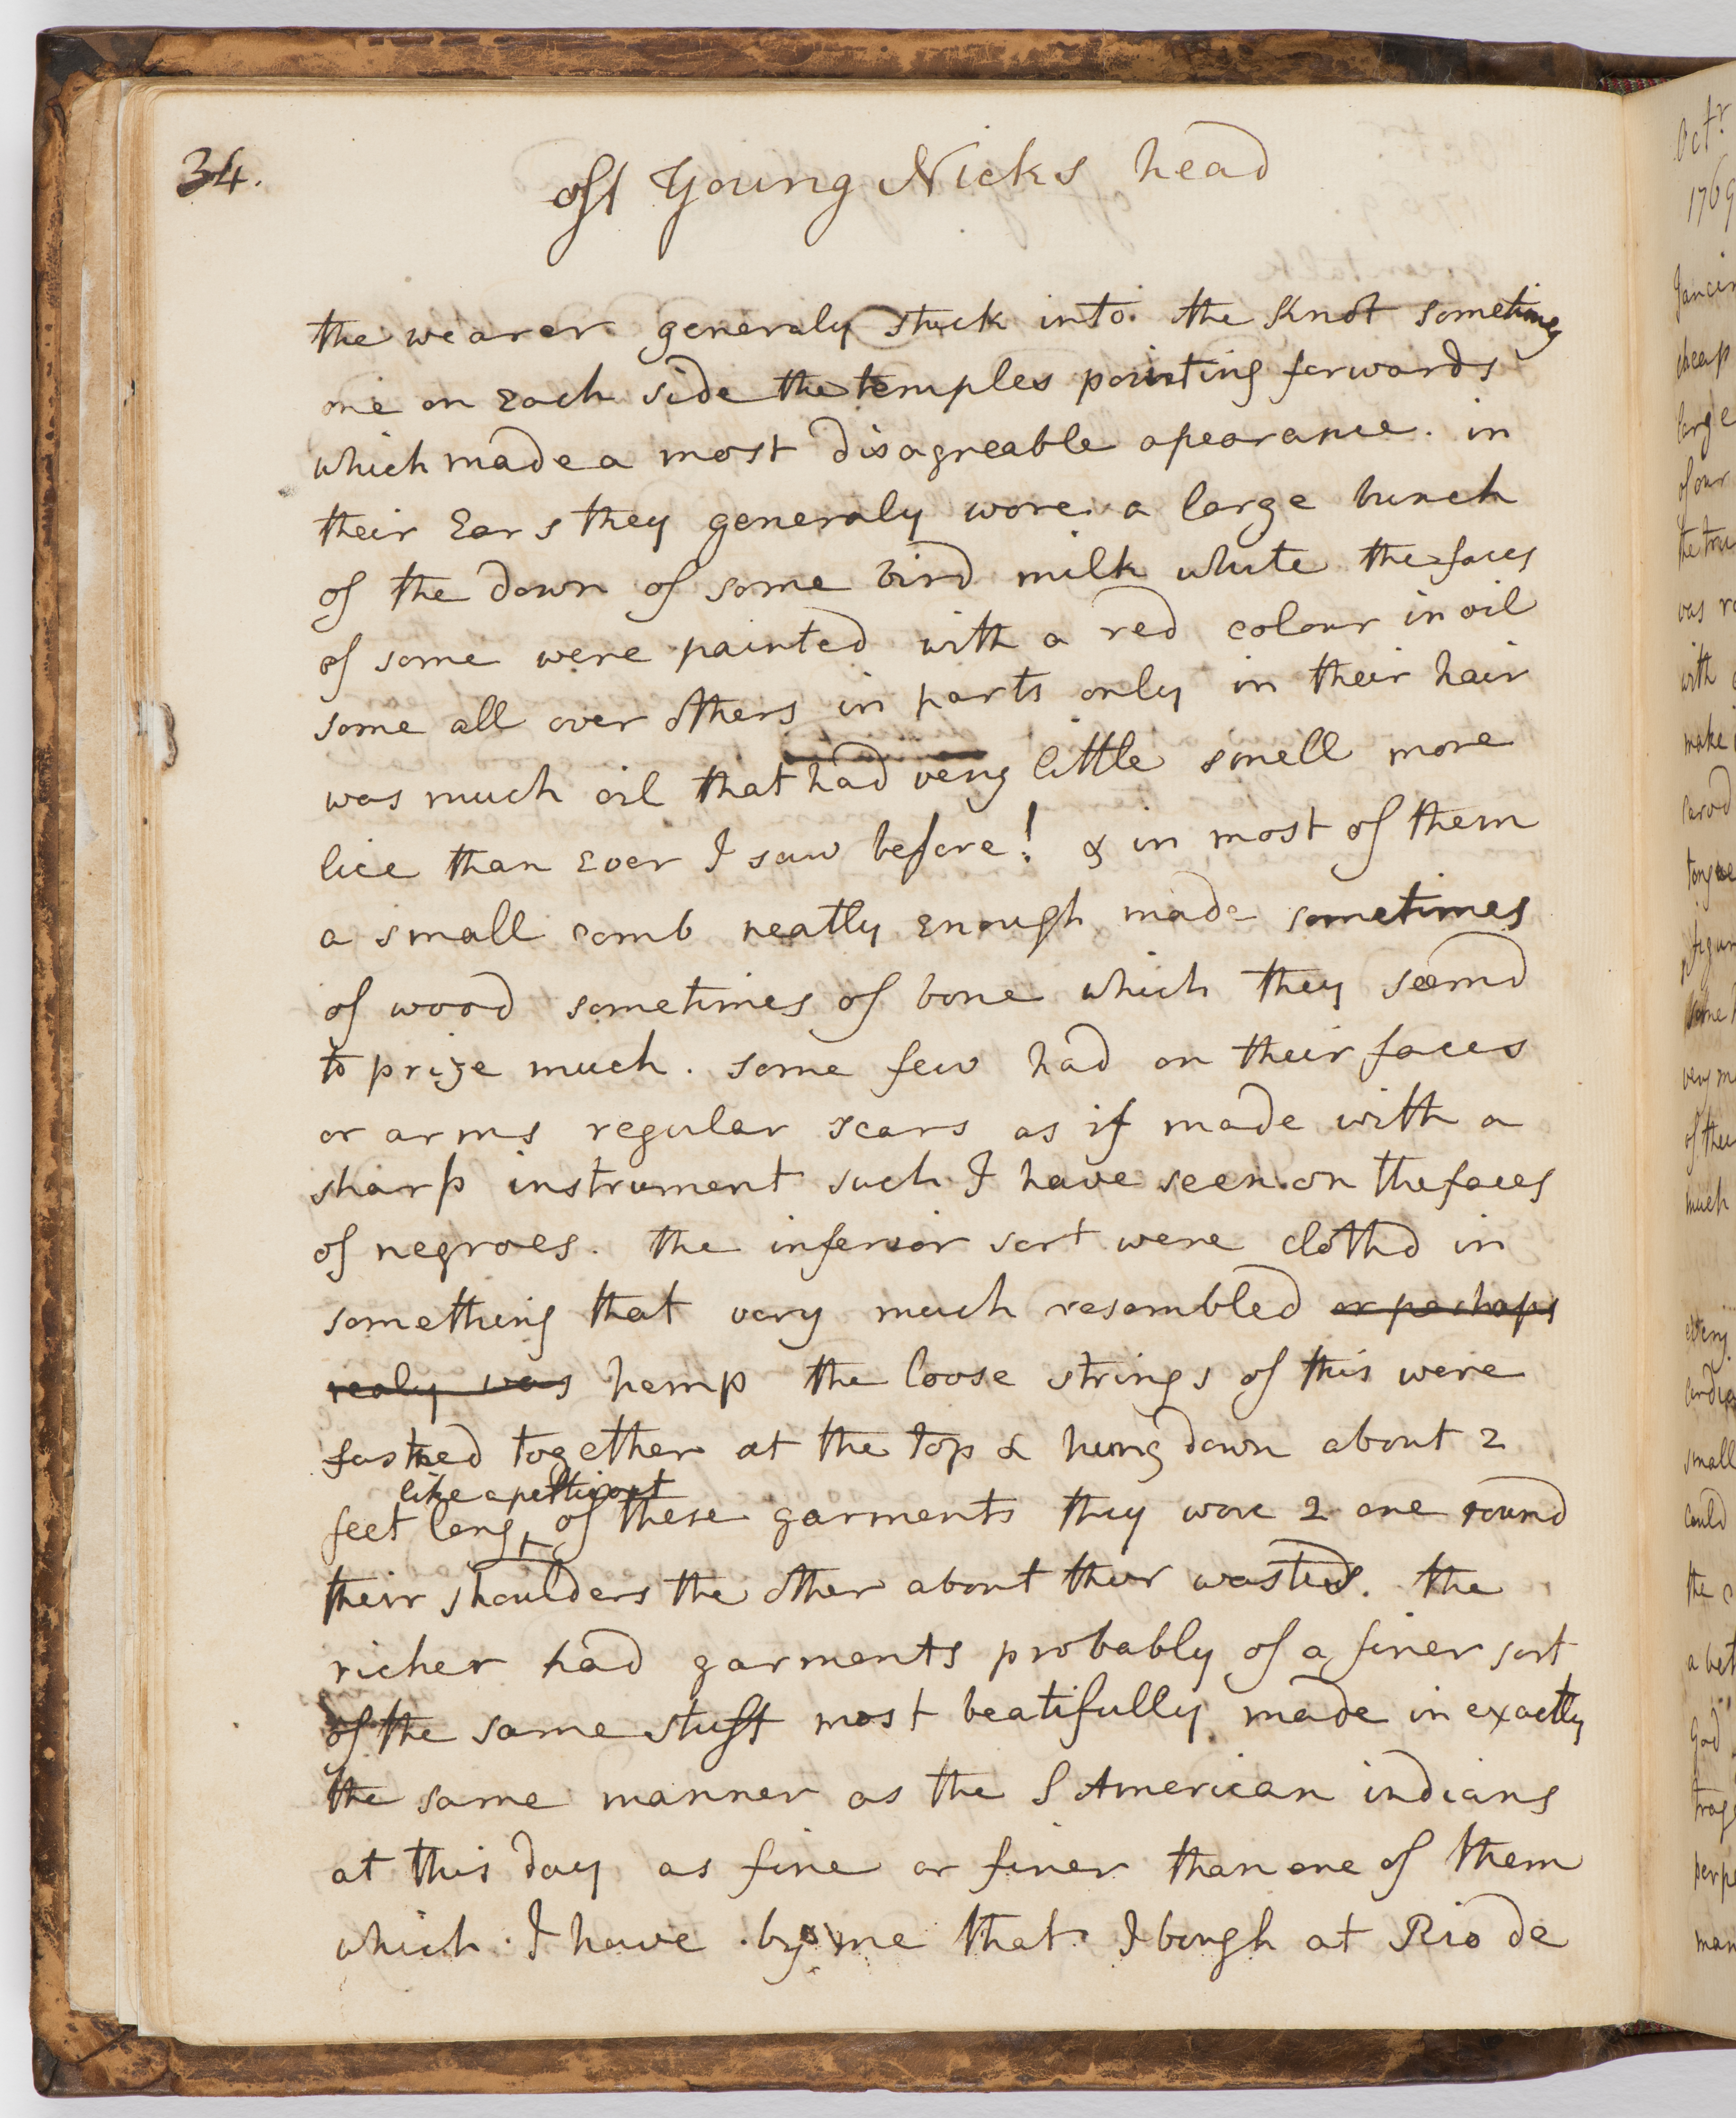 34.
off Young Nicks head
the wearer generaly stuck into the Knot sometimes
one on Each side the temples pointing forwards
which made a most disagreable apearance. in
their Ears they generaly wore a large bunch
of the down of some bird milk white the faces
of some were painted with a red colour in oil
some all over others in parts only in their hair
was much oil that had very little smell more
lice than Ever I saw before! & in most of them
a small comb neatly Enough made sometimes
of wood sometimes of bone which they seemd
to prize much. some few had on their faces
or arms regular scars as if made with a
sharp instrument such I have seen on the faces
of negroes. the inferior sort were clothd in
something that very much resembled or perhaps
realy was hemp the loose strings of this were
fastned together at the top & hung down about 2
like a petticoat
feet long of these garments they wore 2 one round
their shoulders the other about their wasteds. the
richer had garments probably of a finer sort
of the same stuff most beatifully made in exactly
the same manner as the S American indians
at this day as fine or finer than one of them
which I have by me that I bough at Rio de
Octr
1769